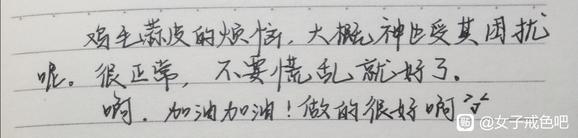 鸡毛蒜皮的烦恼，大概神也受其困扰
呢。很正常，不要慌乱就好了。
啊，加油加油！做的很好啊
贴 @女子戒色吧